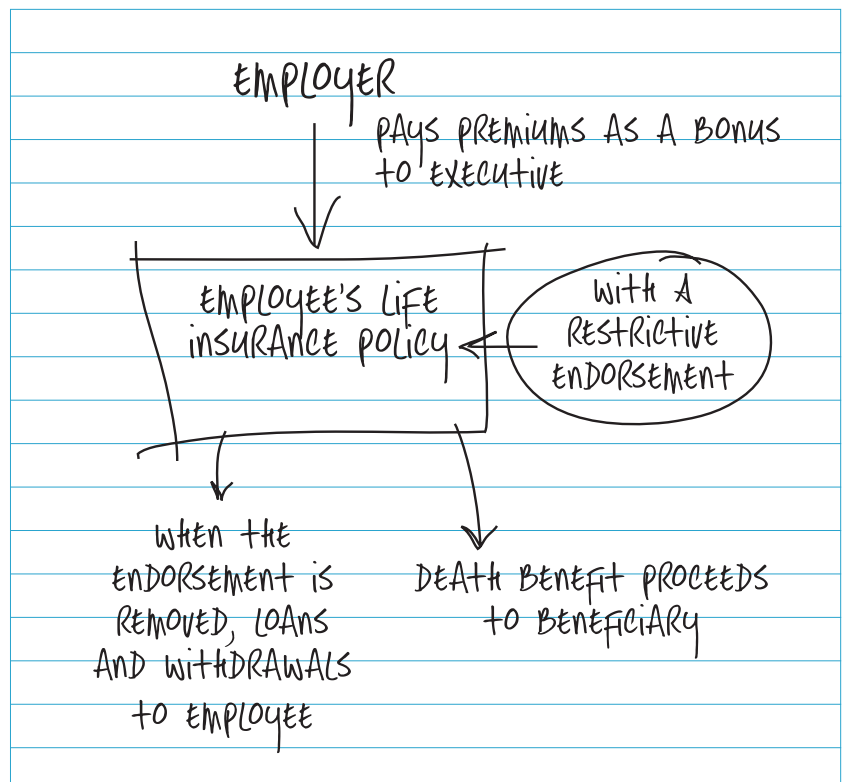 EMPLOYER
PAYS PREMIUMS AS A BONUS
TO EXECUTIVE
EMPLOYEE'S LIFE
INSURANCE POLICY
WITH A
RESTRICTIVE
ENDORSEMENT
WHEN THE
ENDORSEMENT IS
REMOVED, LOANS
AND WITHDRAWALS
TO EMPLOYEE
DEATH BENEFIT PROCEEDS
TO BENEFICIARY